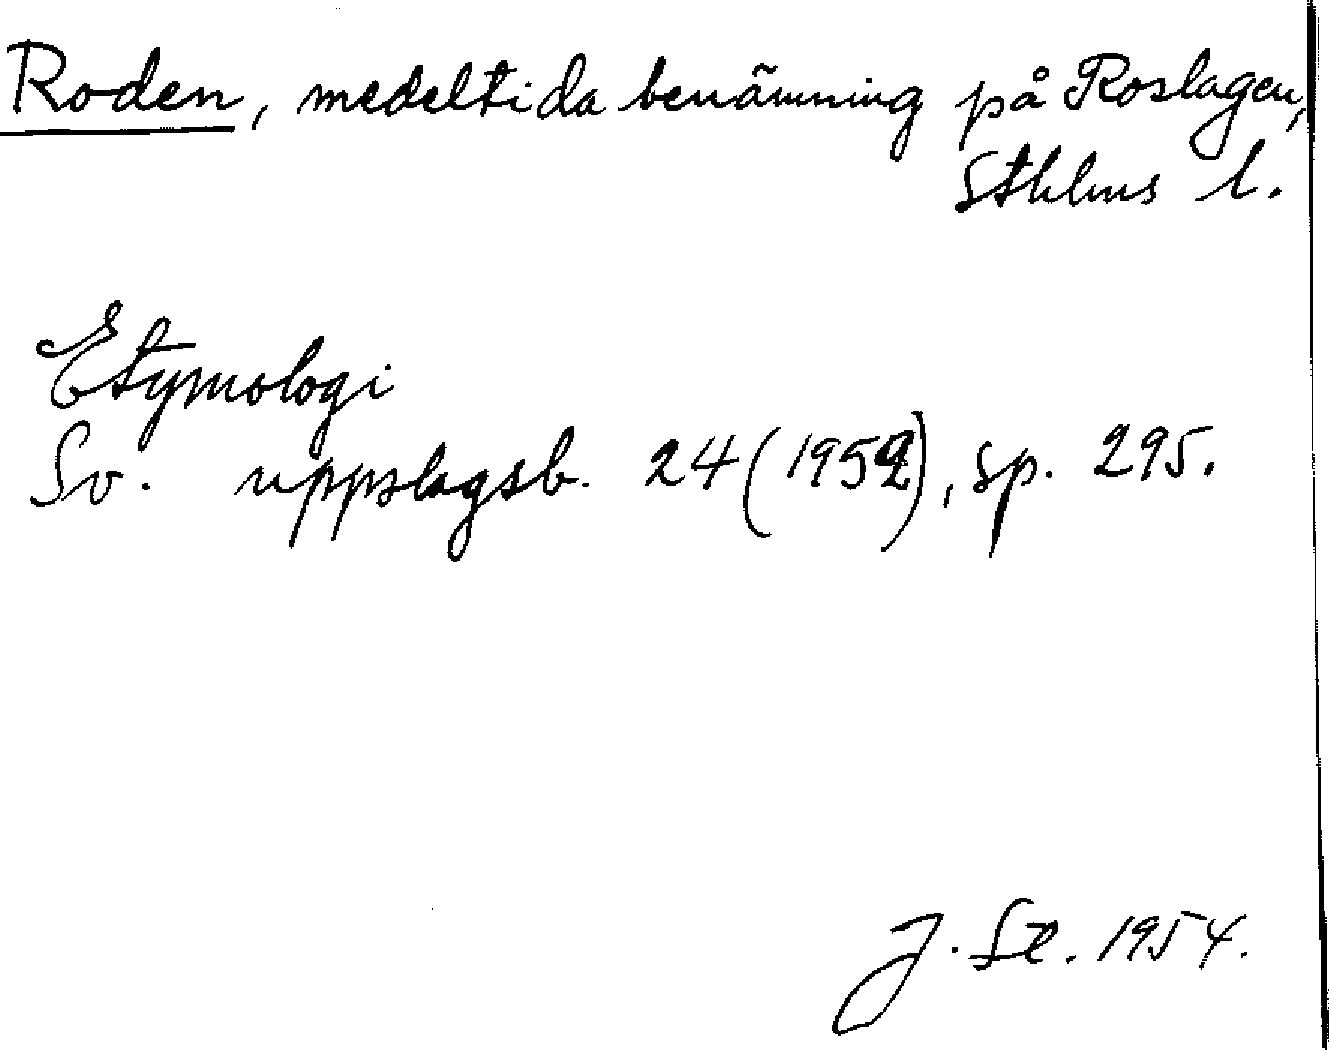 Roden, medeltida benämning på Roslagen,
Sthlms l.
Etymologi
Sv. uppslagsb. 24 (1952), sp. 295.
J. 1954.